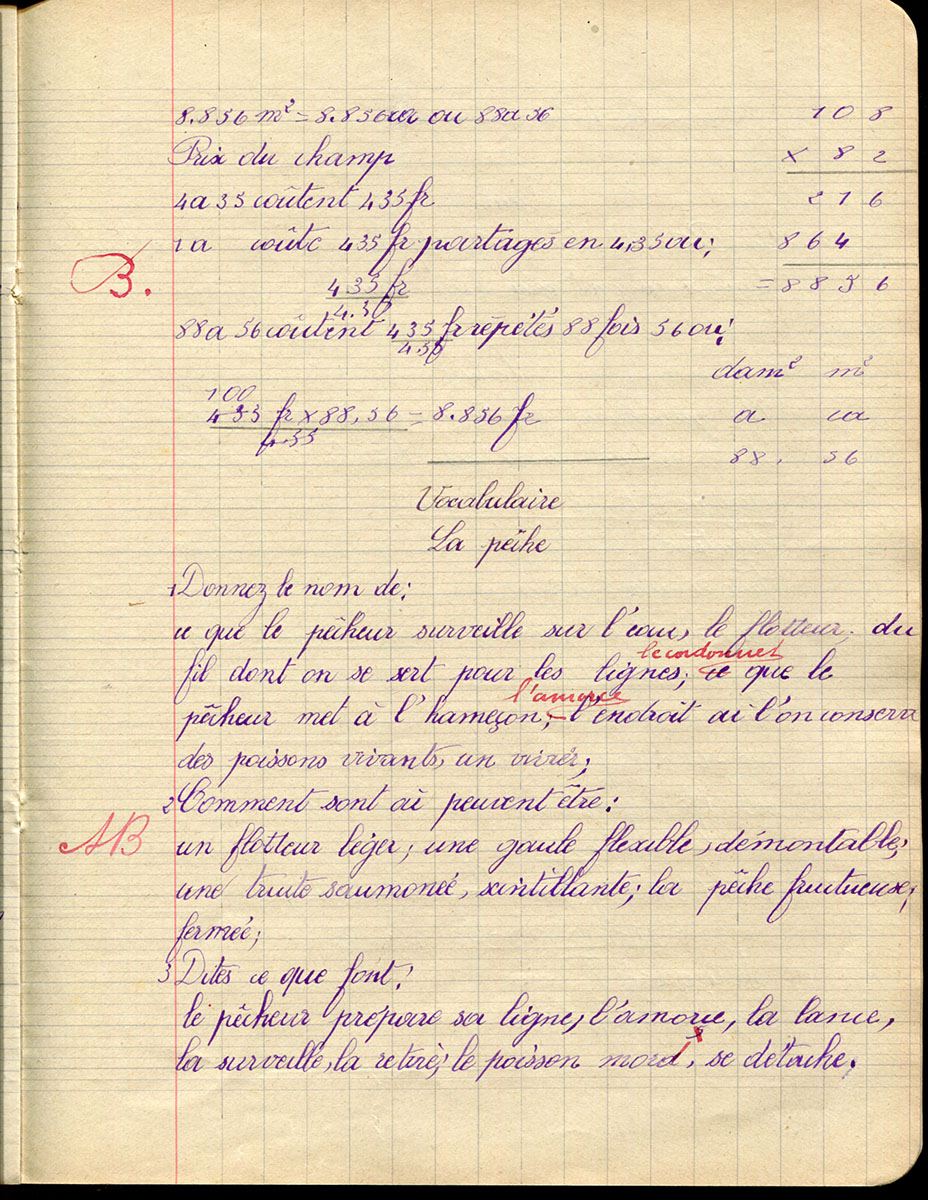 8.856 m² = 8.856ca ou 88a 56
108
Prix du champ
× 82
4a 35 coûtent 435 fr
216
1a coûte 435 fr partagés en 4,35 ou;
864
B.
435 fr
4.35
= 8856
88a 56 coûtent 435 fr répétés 88 fois 56 ou;
4.35
dam² m²
100
435 fr × 88,56 = 8.856 fr
4.35
a ca
88, 56
Vocabulaire
La pêche
1 Donnez le nom de:
ce que le pêcheur surveille sur l'eau, le flotteur; du
le cordonnet
fil dont on se sert pour les lignes; ce que le
l'amorce
pêcheur met à l'hameçon; l'endroit où l'on conserve
des poissons vivants, un vivier;
2 Comment sont où peuvent être:
AB
un flotteur léger; une gaule flexible, démontable;
une truite saumoneé, scintillante; la pêche fructueuse;
fermée;
3 Dites ce que font:
le pêcheur prépare sa ligne, l'amorce, la lance,
la surveille, la retire; le poisson mord, se détache.